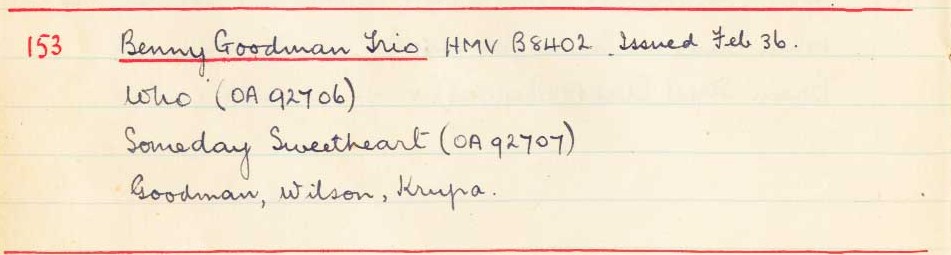 153 Benny Goodman Trio HMV B8402. Issued Feb 36.
Who (OA 92706)
Someday Sweetheart (OA 92707)
Goodman, Wilson, Krupa.